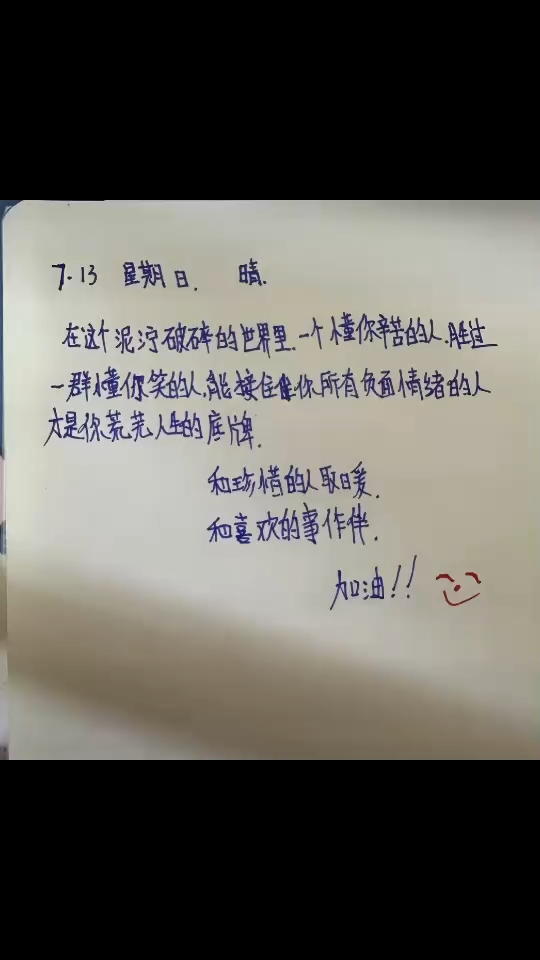 7.13 星期日. 晴.
在这个泥泞破碎的世界里.一个懂你辛苦的人.胜过
一群懂你笑的人.能接住你所有负面情绪的人
才是你荒芜人生的底牌.
和珍惜的人取暖.
和喜欢的事作伴.
加油!!